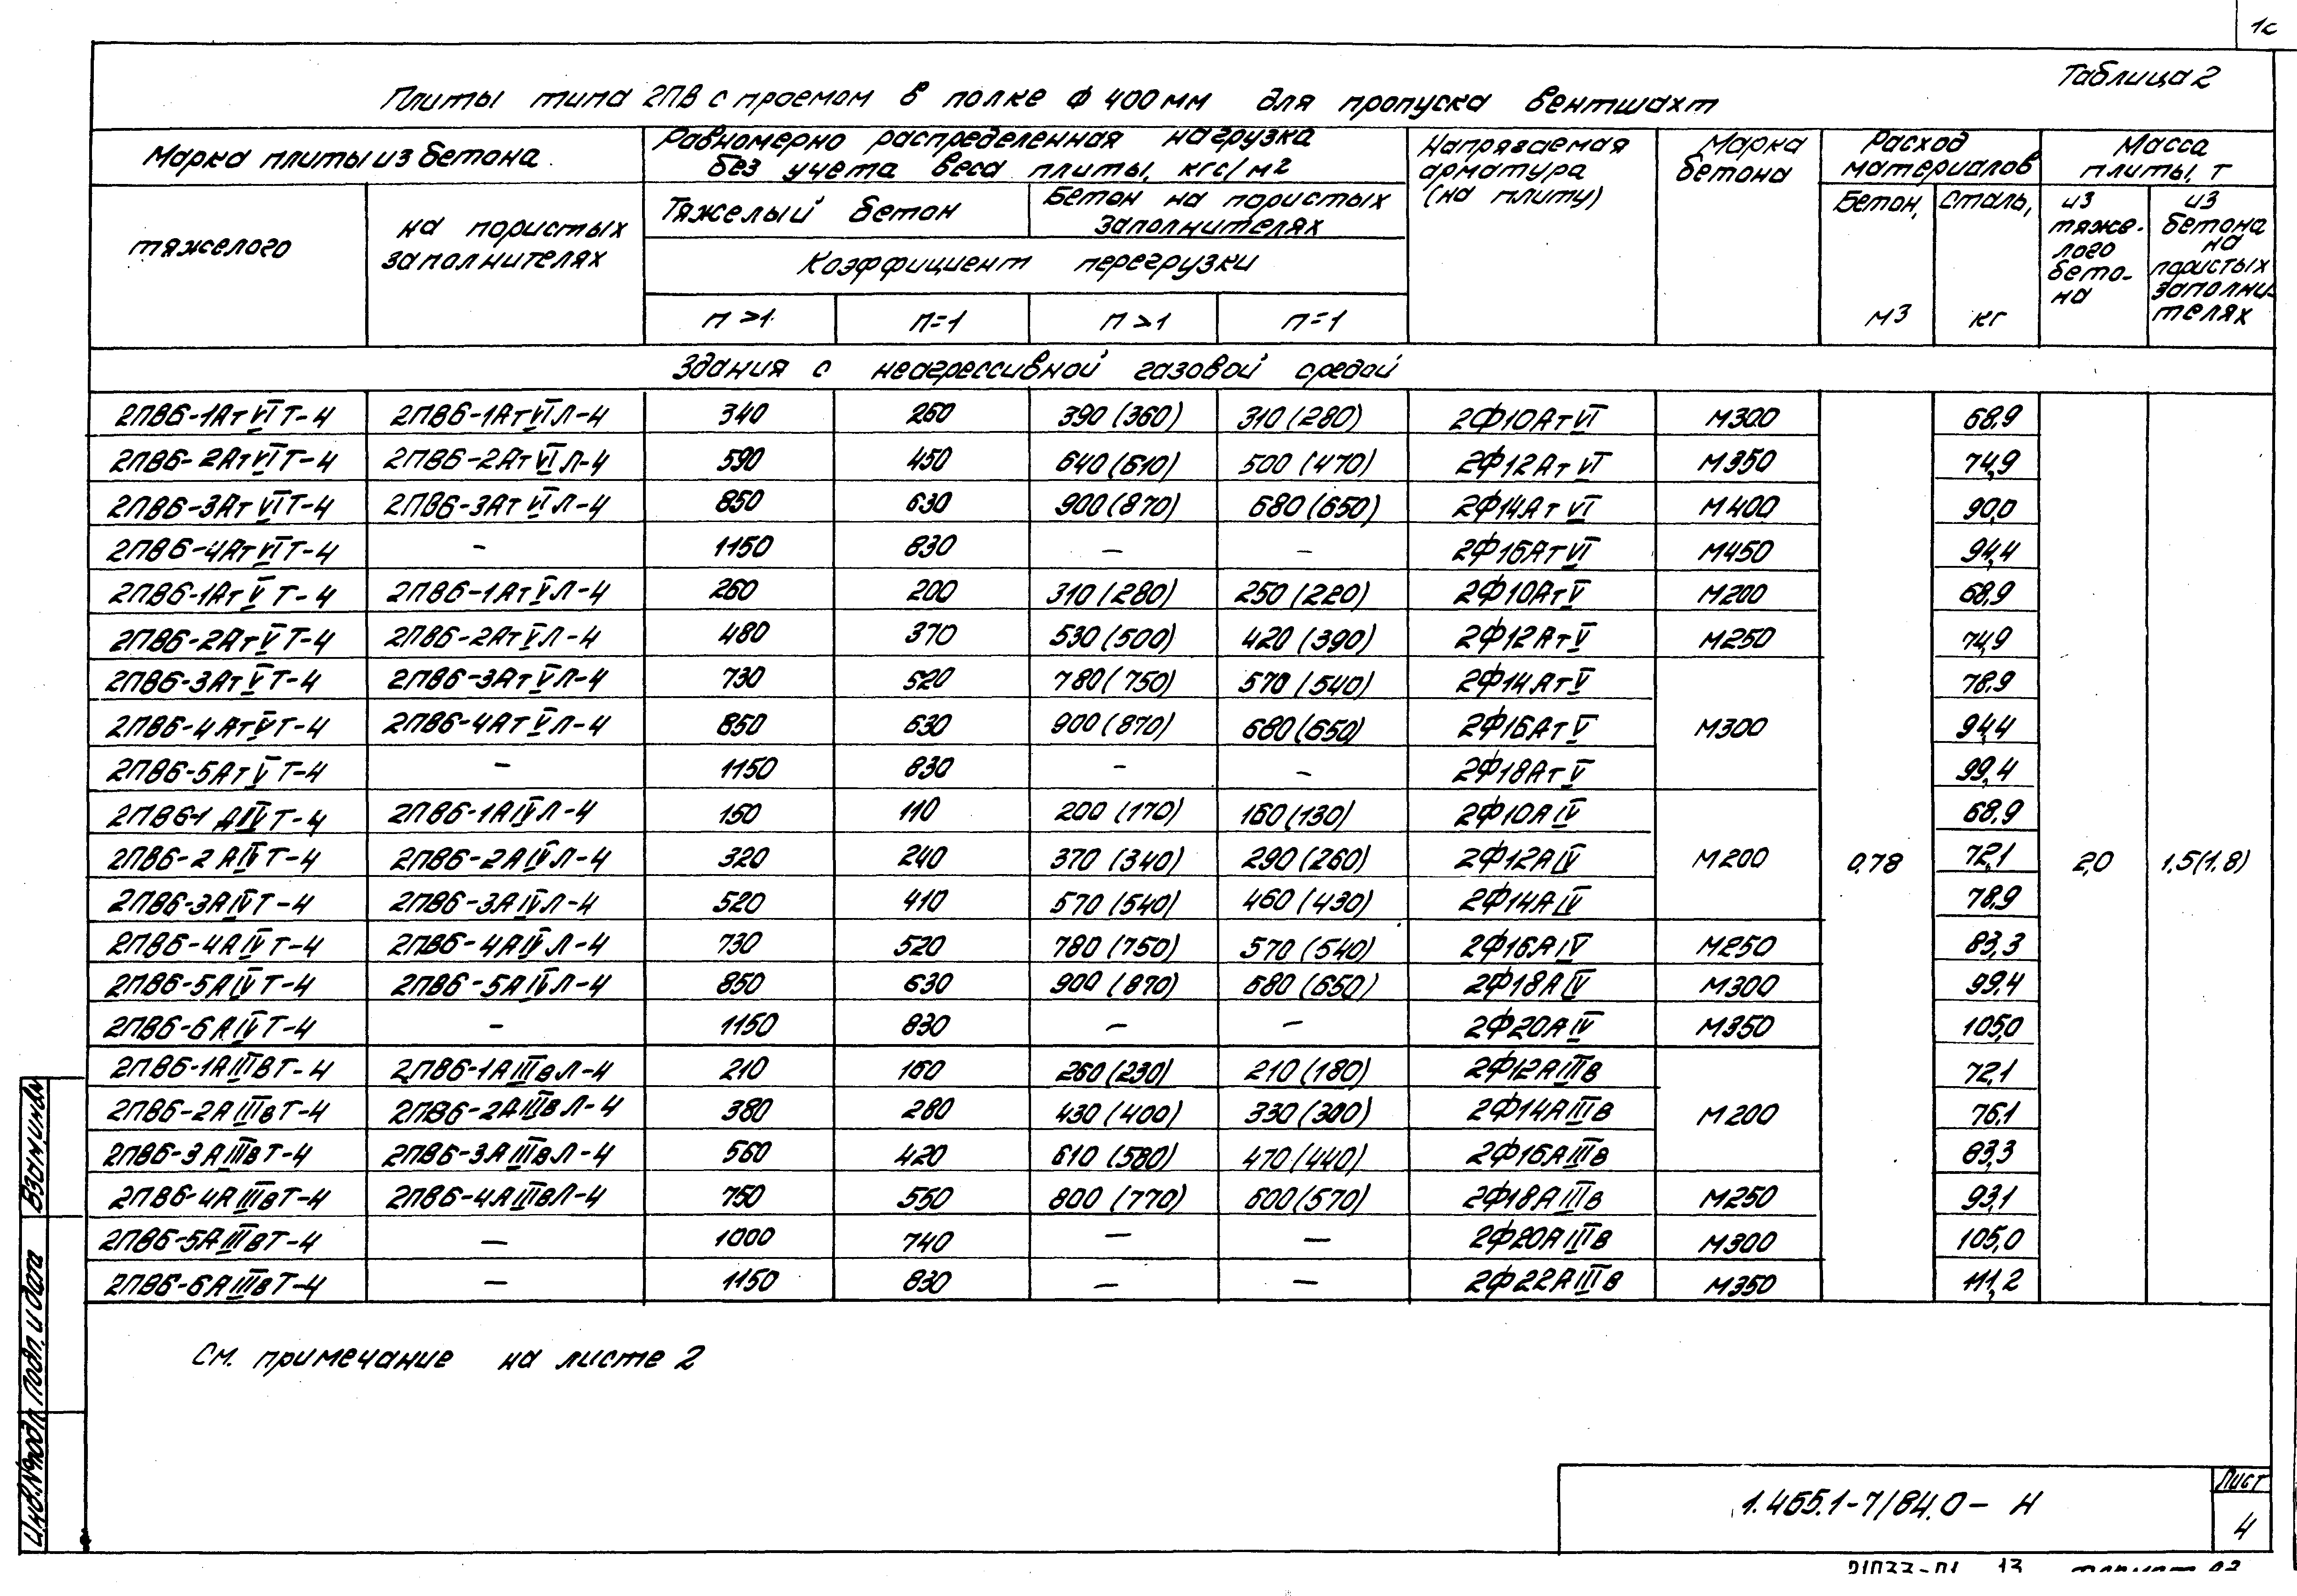 1с
Таблица 2
Плиты типа 2ПВ с проемом в полке ф 400 мм для пропуска вентшахт
Марка плиты из бетона
Равномерно распределенная нагрузка
без учета веса плиты, кгс/м2
Напрягаемая
арматура
(на плиту)
Марка
бетона
Расход
материалов
Масса
плиты, т
тяжелого
на пористых
заполнителях
Тяжелый бетон
Бетон на пористых
заполнителях
Коэффициент перегрузки
п >1 п=1 п >1 п=1
Бетон,
м3
Сталь,
кг
из
тяже-
лого
бето-
на
из
бетона
на
пористых
заполни-
телях
Здания с неагрессивной газовой средой
2ПВ6-1АтVIТ-4 2ПВ6-1АтVIЛ-4 340 260 390 (360) 310 (280) 2Ф10АтVI М300 68,9
2ПВ6-2АтVIТ-4 2ПВ6-2АтVIЛ-4 590 450 640 (610) 500 (470) 2Ф12АтVI М350 74,9
2ПВ6-3АтVIТ-4 2ПВ6-3АтVIЛ-4 850 630 900 (870) 680 (650) 2Ф14АтVI М400 90,0
2ПВ6-4АтVIТ-4 – 1150 830 – – 2Ф16АтVI М450 94,4
2ПВ6-1АтVТ-4 2ПВ6-1АтVЛ-4 260 200 310 (280) 250 (220) 2Ф10АтV М200 68,9
2ПВ6-2АтVТ-4 2ПВ6-2АтVЛ-4 480 370 530 (500) 420 (390) 2Ф12АтV М250 74,9
2ПВ6-3АтVТ-4 2ПВ6-3АтVЛ-4 730 520 780 (750) 570 (540) 2Ф14АтV 78,9
2ПВ6-4АтVТ-4 2ПВ6-4АтVЛ-4 850 630 900 (870) 680 (650) 2Ф16АтV М300 94,4
2ПВ6-5АтVТ-4 – 1150 830 – – 2Ф18АтV 99,4
2ПВ6-1АIVТ-4 2ПВ6-1АIVЛ-4 150 110 200 (170) 160 (130) 2Ф10АIV 68,9
2ПВ6-2АIVТ-4 2ПВ6-2АIVЛ-4 320 240 370 (340) 290 (260) 2Ф12АIV М200 0,78 72,1 2,0 1,5(1,8)
2ПВ6-3АIVТ-4 2ПВ6-3АIVЛ-4 520 410 570 (540) 460 (430) 2Ф14АIV 78,9
2ПВ6-4АIVТ-4 2ПВ6-4АIVЛ-4 730 520 780 (750) 570 (540) 2Ф16АIV М250 83,3
2ПВ6-5АIVТ-4 2ПВ6-5АIVЛ-4 850 630 900 (870) 680 (650) 2Ф18АIV М300 99,4
2ПВ6-6АIVТ-4 – 1150 830 – – 2Ф20АIV М350 105,0
2ПВ6-1АIIIВТ-4 2ПВ6-1АIIIвЛ-4 210 160 260 (230) 210 (180) 2Ф12АIIIв 72,1
2ПВ6-2АIIIвТ-4 2ПВ6-2АIIIвЛ-4 380 280 430 (400) 330 (300) 2Ф14АIIIв М200 76,1
2ПВ6-3АIIIвТ-4 2ПВ6-3АIIIвЛ-4 560 420 610 (580) 470 (440) 2Ф16АIIIв 83,3
2ПВ6-4АIIIвТ-4 2ПВ6-4АIIIвЛ-4 750 550 800 (770) 600 (570) 2Ф18АIIIв М250 93,1
2ПВ6-5АIIIвТ-4 – 1000 740 – – 2Ф20АIIIв М300 105,0
2ПВ6-6АIIIвТ-4 – 1150 830 – – 2Ф22АIIIв М350 111,2
См. примечание на листе 2
Инв.№подл. Подп. и дата Взам.инв№
1.465.1-7/84.0- Н
Лист
4
13